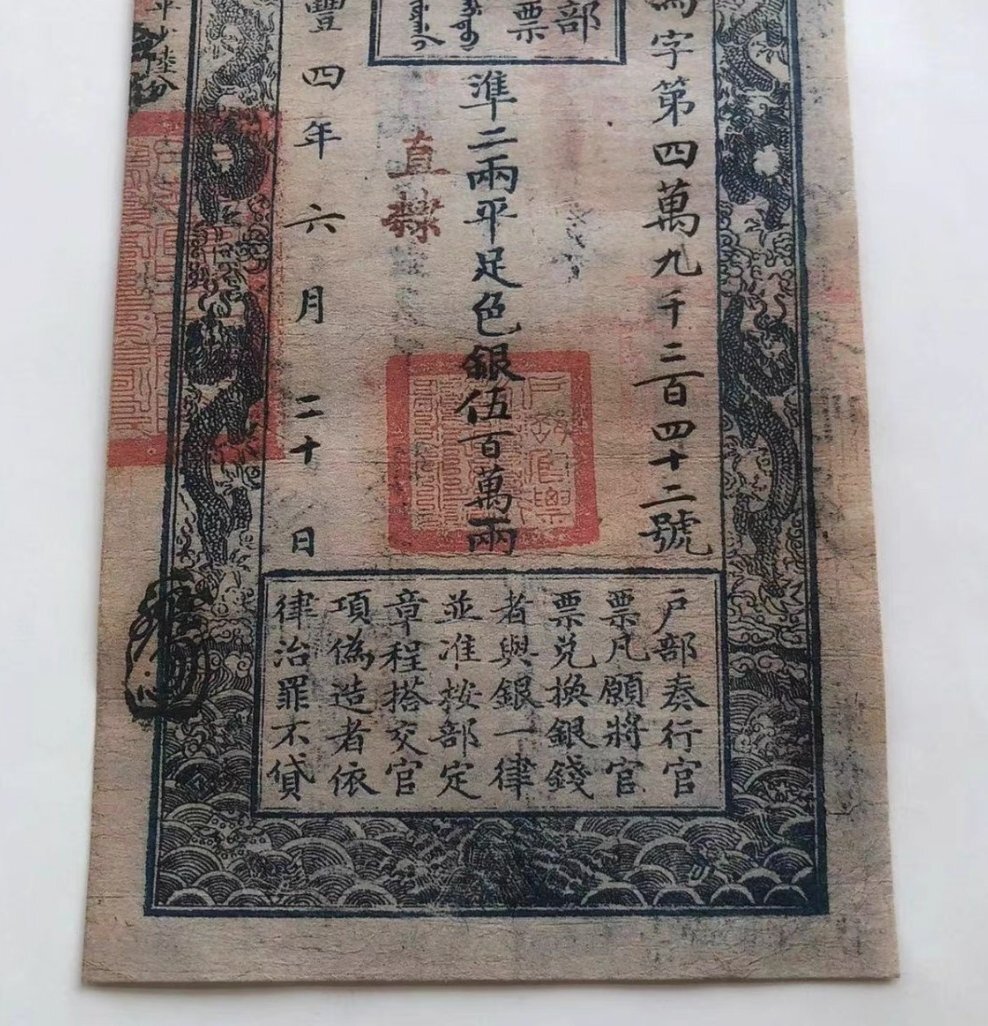 字第四萬九千二百四十二號
部
票
準二兩平足色銀伍百萬兩
直隸
豐四年六月二十日
平少陸分
户部奏行官
票凡願將官
票兑換銀錢
者與銀一律
並准按部定
章程搭交官
項偽造者依
律治罪不貸